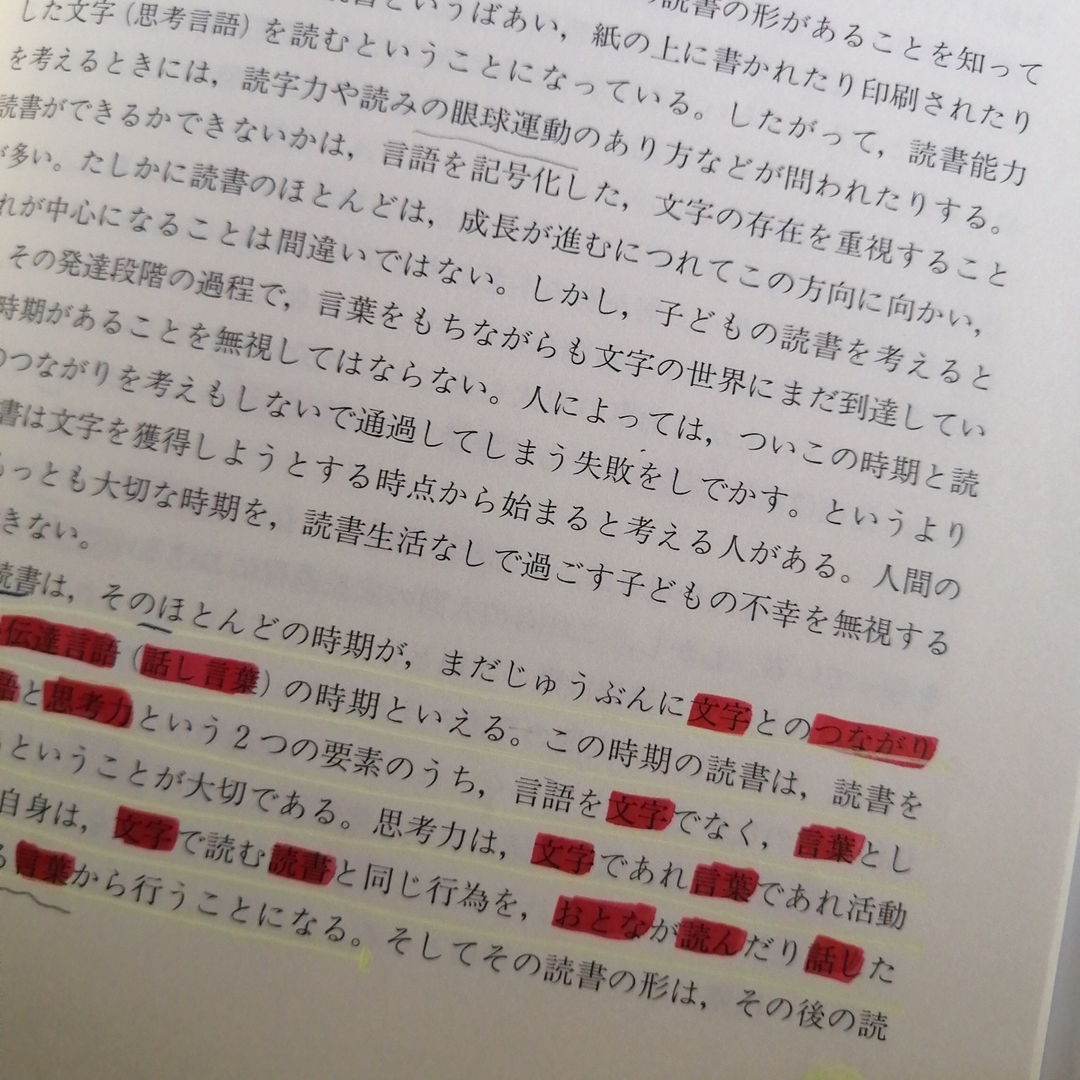 読書の形があることを知って
書というばあい，紙の上に書かれたり印刷されたり
した文字（思考言語）を読むということになっている。したがって，読書能力
を考えるときには，読字力や読みの眼球運動のあり方などが問われたりする。
読書ができるかできないかは，言語を記号化した，文字の存在を重視すること
が多い。たしかに読書のほとんどは，成長が進むにつれてこの方向に向かい，
れが中心になることは間違いではない。しかし，子どもの読書を考えると
その発達段階の過程で，言葉をもちながらも文字の世界にまだ到達してい
時期があることを無視してはならない。人によっては，ついこの時期と読
のつながりを考えもしないで通過してしまう失敗をしでかす。というより
書は文字を獲得しようとする時点から始まると考える人がある。人間の
もっとも大切な時期を，読書生活なしで過ごす子どもの不幸を無視する
きない。
読書は，そのほとんどの時期が，まだじゅうぶんに文字とのつながり
伝達言語（話し言葉）の時期といえる。この時期の読書は，読書を
語と思考力という２つの要素のうち，言語を文字でなく，言葉とし
ということが大切である。思考力は，文字であれ言葉であれ活動
自身は，文字で読む読書と同じ行為を，おとなが読んだり話した
る言葉から行うことになる。そしてその読書の形は，その後の読